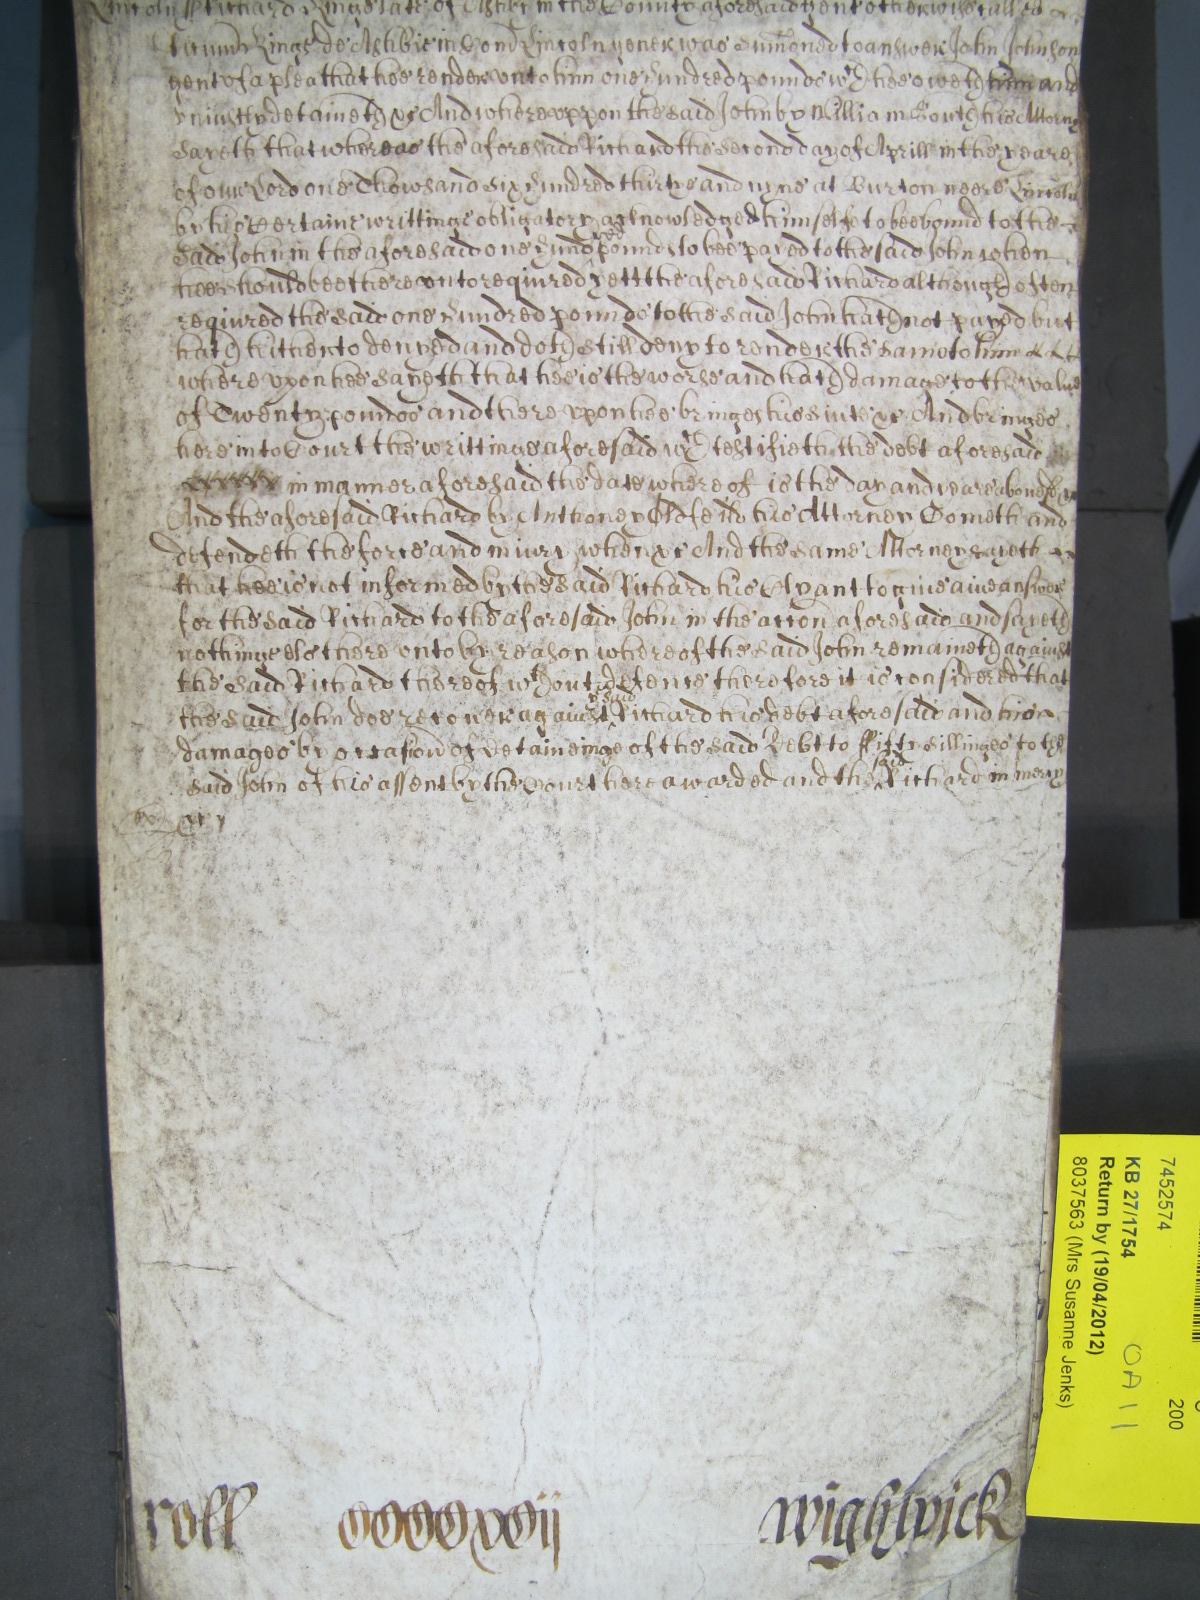 Lincoln ss Richard Kinge late of Ashbie in the County aforesaid gent otherwise called
Kinge de Ashbie in Com Lincoln was sumoned to answer John Johnson
gent of a plea that hee render unto him one hundred pounds wch hee oweth him and
uniustly detaineth &c And whereuppon the said John by William South his Attorny
sayeth that whereas the aforesaid Richard the second day of Aprill in the yeare
of our Lord one Thowsand six hundred thirtye and nyne at Burton neere Lincoln
by his certaine writtinge obligatory acknowledged himselfe to bee bound to the
said John in the aforesaid one hund red pounds to bee payed to the said John when
hee should bee thereunto required yett the aforesaid Richard although often
required the said one hundred pounds to the said John hath not payed but
hath hitherto denyed and doth still deny to render the same to him &c
whereupon hee sayeth that hee is the worse and hath damage to the value
of Twenty pounds and thereupon hee bringes his suite &c And bringes
here into Court the writtinge aforesaid wch testifieth the debt aforesaid
in manner aforesaid the date whereof is the day and yeare abovesd &c
And the aforesaid Richard by Anthoney Oldfeild his Attorney Cometh and
defendeth the force and iniury when &c And the same Attorney sayeth
that hee is not informed by the said Richard his Clyant to give anie answer
for the said Richard to the aforesaid John in the accon aforesaid and sayeth
nothinge els thereunto by reason whereof the said John remaineth against
the said Richard thereof wthout defence therefore it is considered that
the said John doe recover against ye said Richard his debt aforesaid and his
damages by occasion of detaineinge of the said Debt to fifty sillinges to the
said John of his assent by the Court here awarded and the said Richard in mercy
&c
roll CCCCxvii wightwick
7452574
KB 27/1754
Return by (19/04/2012)
8037563 (Mrs Susanne Jenks)
OA11
200